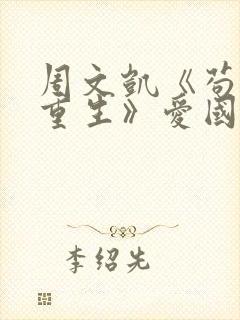 周文凯《苟
重生》爱國
李绍先